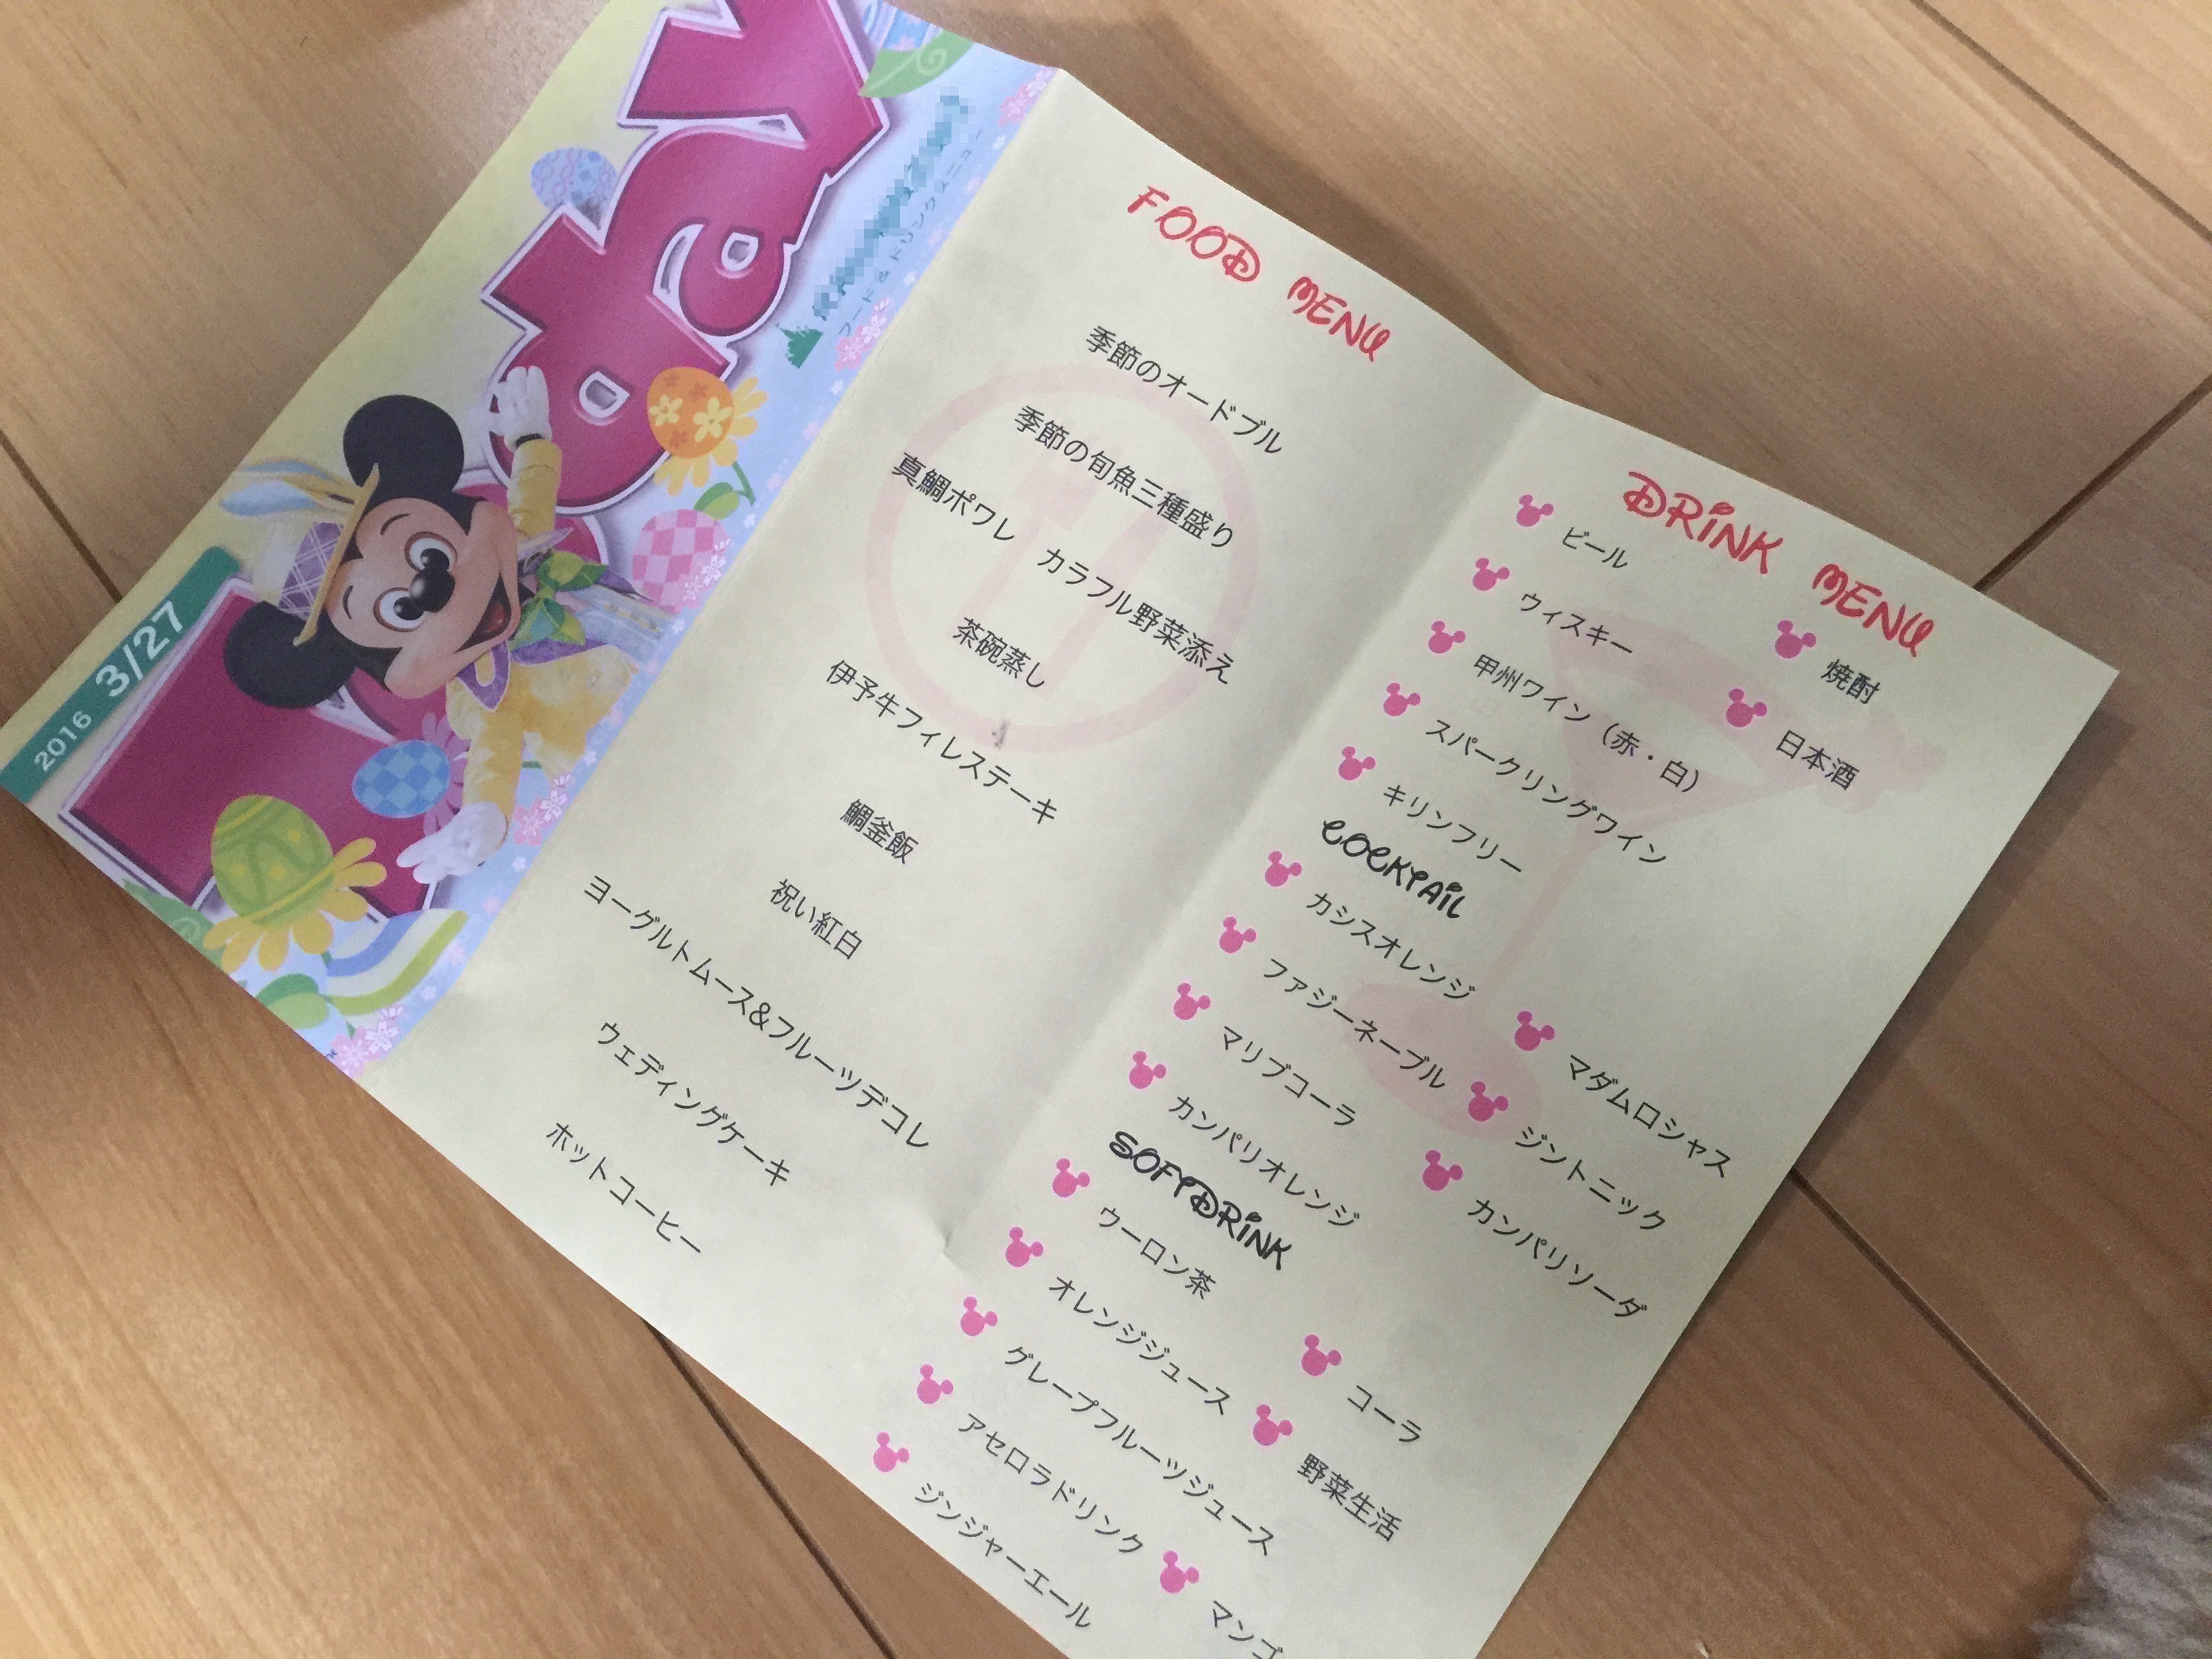 Today
2016 3/27
フード&ドリンクメニュー
FOOD MENU
季節のオードブル
季節の旬魚三種盛り
真鯛ポワレ カラフル野菜添え
茶碗蒸し
伊予牛フィレステーキ
鯛釜飯
祝い紅白
ヨーグルトムース&フルーツデコレ
ウェディングケーキ
ホットコーヒー
DRiNK MENU
ビール
焼酎
ウィスキー
日本酒
甲州ワイン（赤・白）
スパークリングワイン
キリンフリー
COCKTAiL
カシスオレンジ
マダムロシャス
ファジーネーブル
ジントニック
マリブコーラ
カンパリソーダ
カンパリオレンジ
SOFTDRiNK
ウーロン茶
コーラ
オレンジジュース
野菜生活
グレープフルーツジュース
マンゴ
アセロラドリンク
ジンジャーエール